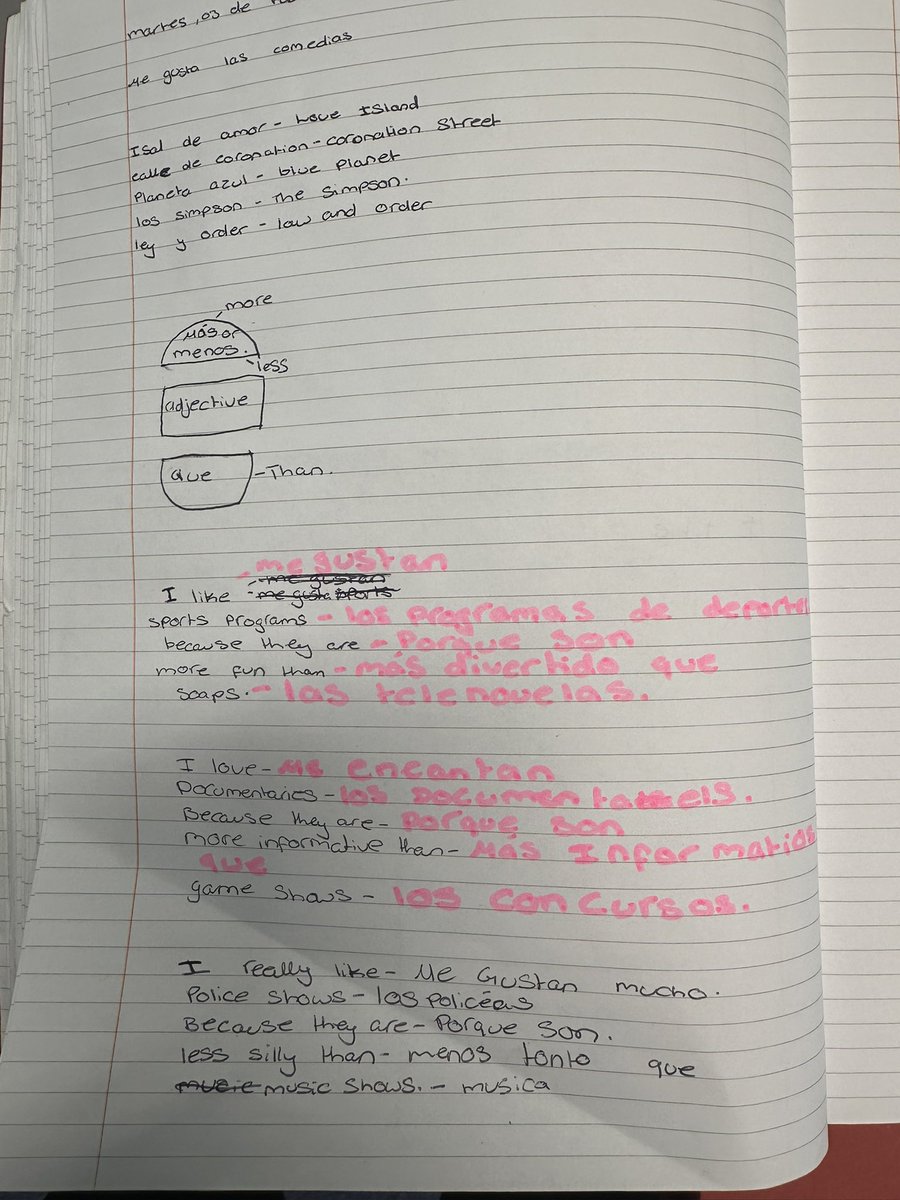 martes, 03 de
Me gusta las comedias
Isal de amor - Love Island
calle de coronation - coronation Street
Planeta azul - blue planet
los simpson - The Simpson.
ley y order - law and order
more
Más or
menos.
less
adjective
que - Than.
- me gustan
me gustan
I like - me gusta sports
sports programs - los programas de deporte
because they are - Porque son
more fun than - más divertido que
soaps. - las telenovelas.
I love - Me encantan
Documentaries - los Documentaels.
Because they are - Porque son
more informative than - Más Informatios
que
game shows - los concursos.
I really like - Me Gustan mucho.
Police shows - los policéas
Because they are - Porque son.
less silly than - menos tonto que
music shows. - musica